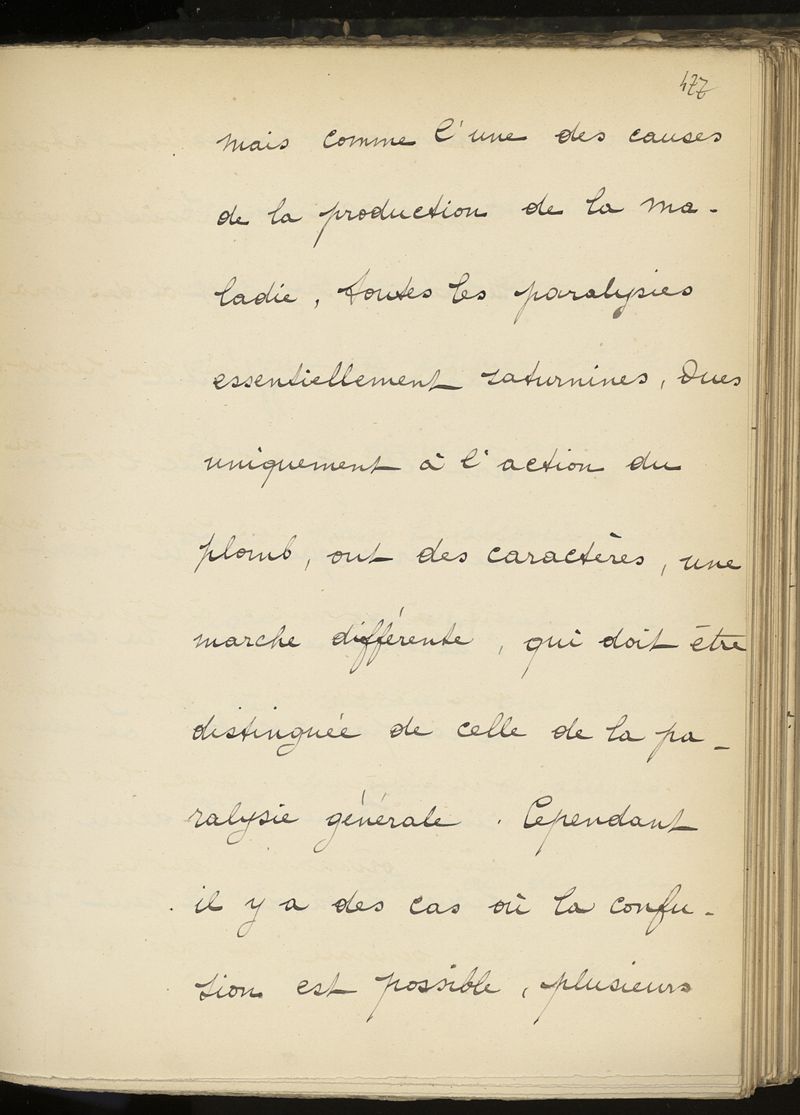 477
mais comme l'une des causes
de la production de la ma-
ladie, toutes les paralysies
essentiellement saturnines, dues
uniquement à l'action du
plomb, ont des caractères, une
marche différente, qui doit être
distinguée de celle de la pa-
ralysie générale. Cependant
il y a des cas où la confu-
sion est possible, plusieurs